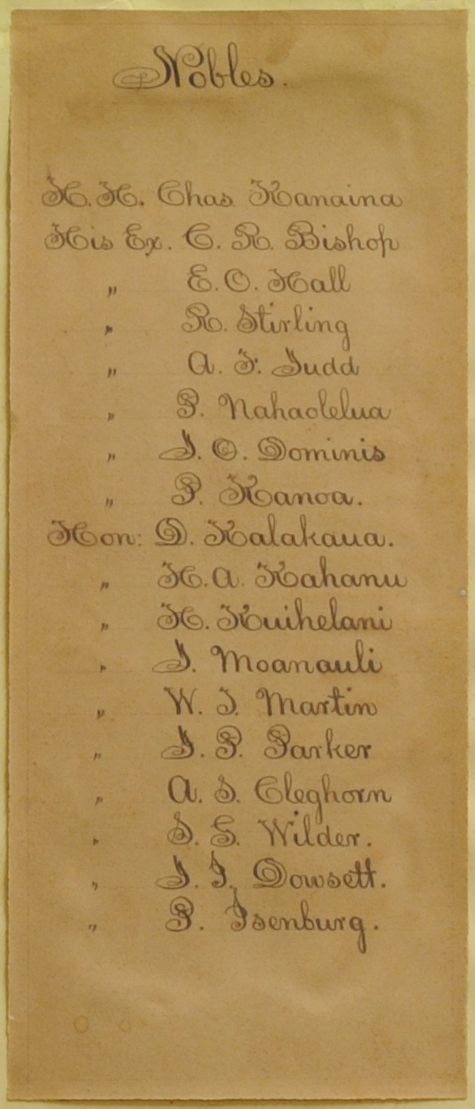 Nobles.
H. H. Chas Kanaina
His Ex. C. R. Bishop
" E. O. Hall
" R. Stirling
" A. F. Judd
" P. Nahaolelua
" J. O. Dominis
" P. Kanoa.
Hon: D. Kalakaua.
" H. A. Kahanu
" H. Kuihelani
" J. Moanauli
" W. T. Martin
" J. P. Parker
" A. S. Cleghorn
" S. G. Wilder.
" J. I. Dowsett.
" P. Isenburg.